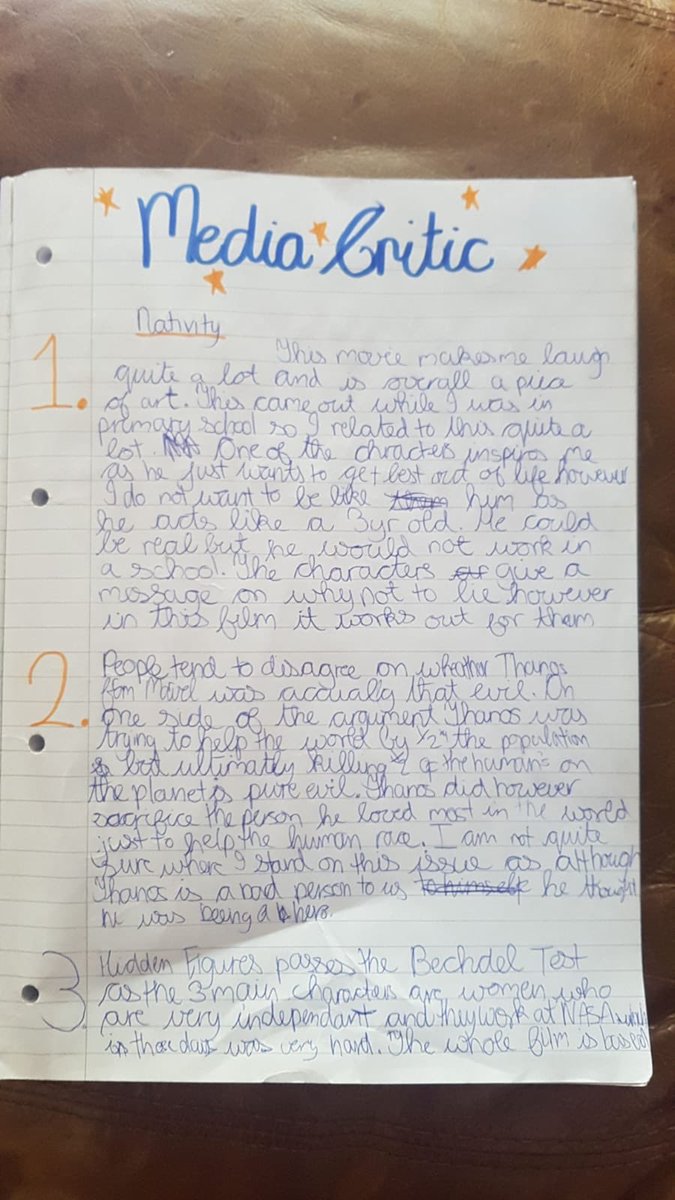 Media Critic
Nativity
1. This movie makes me laugh
quite a lot and is overall a piece
of art. This came out while I was in
primary school so I related to this quite a
lot. One of the chracters inspires me
as he just wants to get best out of life however
I do not want to be like him as
he acts like a 3yr old. He could
be real but he would not work in
a school. The characters give a
message on why not to lie however
in this film it works out for them
2. People tend to disagree on wheather Thanos
from Marvel was actually that evil. On
one side of the argument Thanos was
trying to help the world by 1/2 the population
but ultimatly killing 1/2 of the humans on
the planet is pure evil. Thanos did however
sacrifice the person he loved most in the world
just to help the human race. I am not quite
sure where I stand on this issue as although
Thanos is a bad person to us he thought
he was being a hero.
3. Hidden Figures passes the Bechdel Test
as the 3 main characters are women who
are very independant and they work at NASA which
in those days was very hard. The whole film is